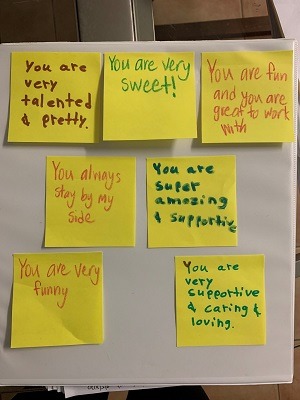 You are
very
talented
& pretty.
You are very
sweet!
You are fun
and you are
great to work
with
You always
stay by my
side
You are
super
amazing
& supportive
You are very
funny
You are
very
supportive
& caring &
loving.